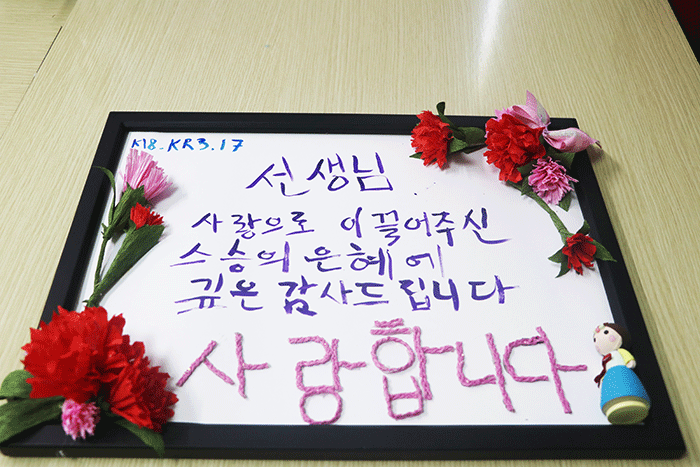 K18_KR3.17
선생님
사랑으로 이끌어주신
스승의 은혜에
깊은 감사드립니다
사랑합니다